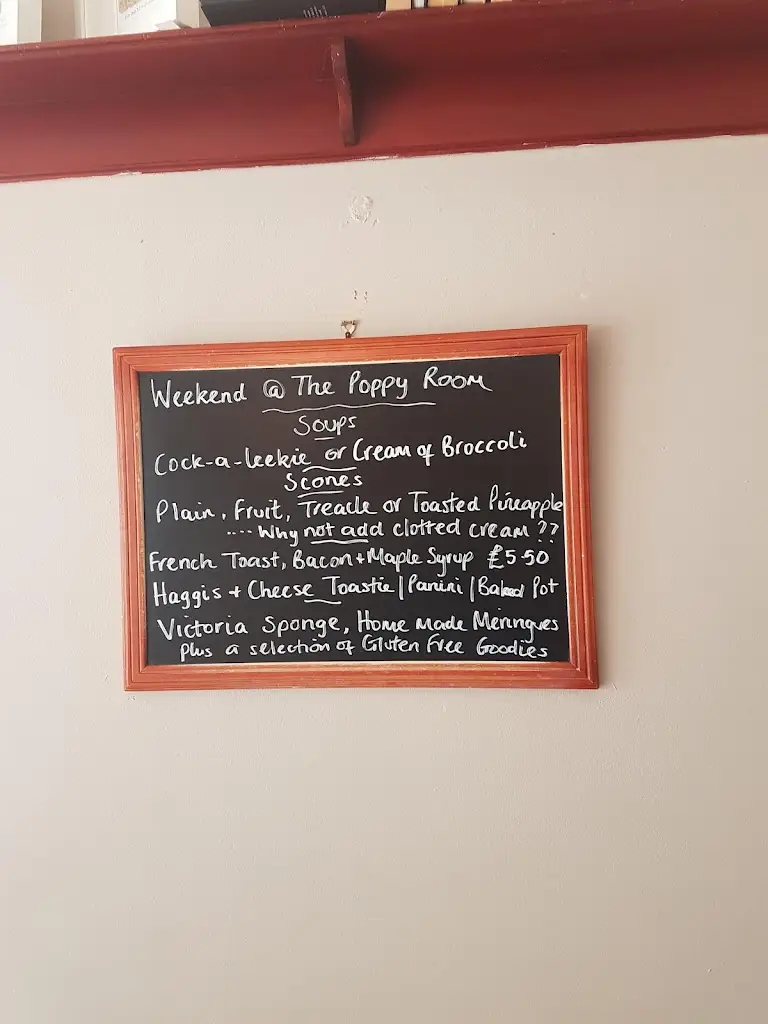 Weekend @ The Poppy Room
Soups
Cock-a-leekie or Cream of Broccoli
Scones
Plain, Fruit, Treacle or Toasted Pineapple
.... Why not add clotted cream ??
French Toast, Bacon + Maple Syrup £5.50
Haggis + Cheese Toastie | Panini | Baked Pot
Victoria Sponge, Home Made Meringues
Plus a selection of Gluten Free Goodies